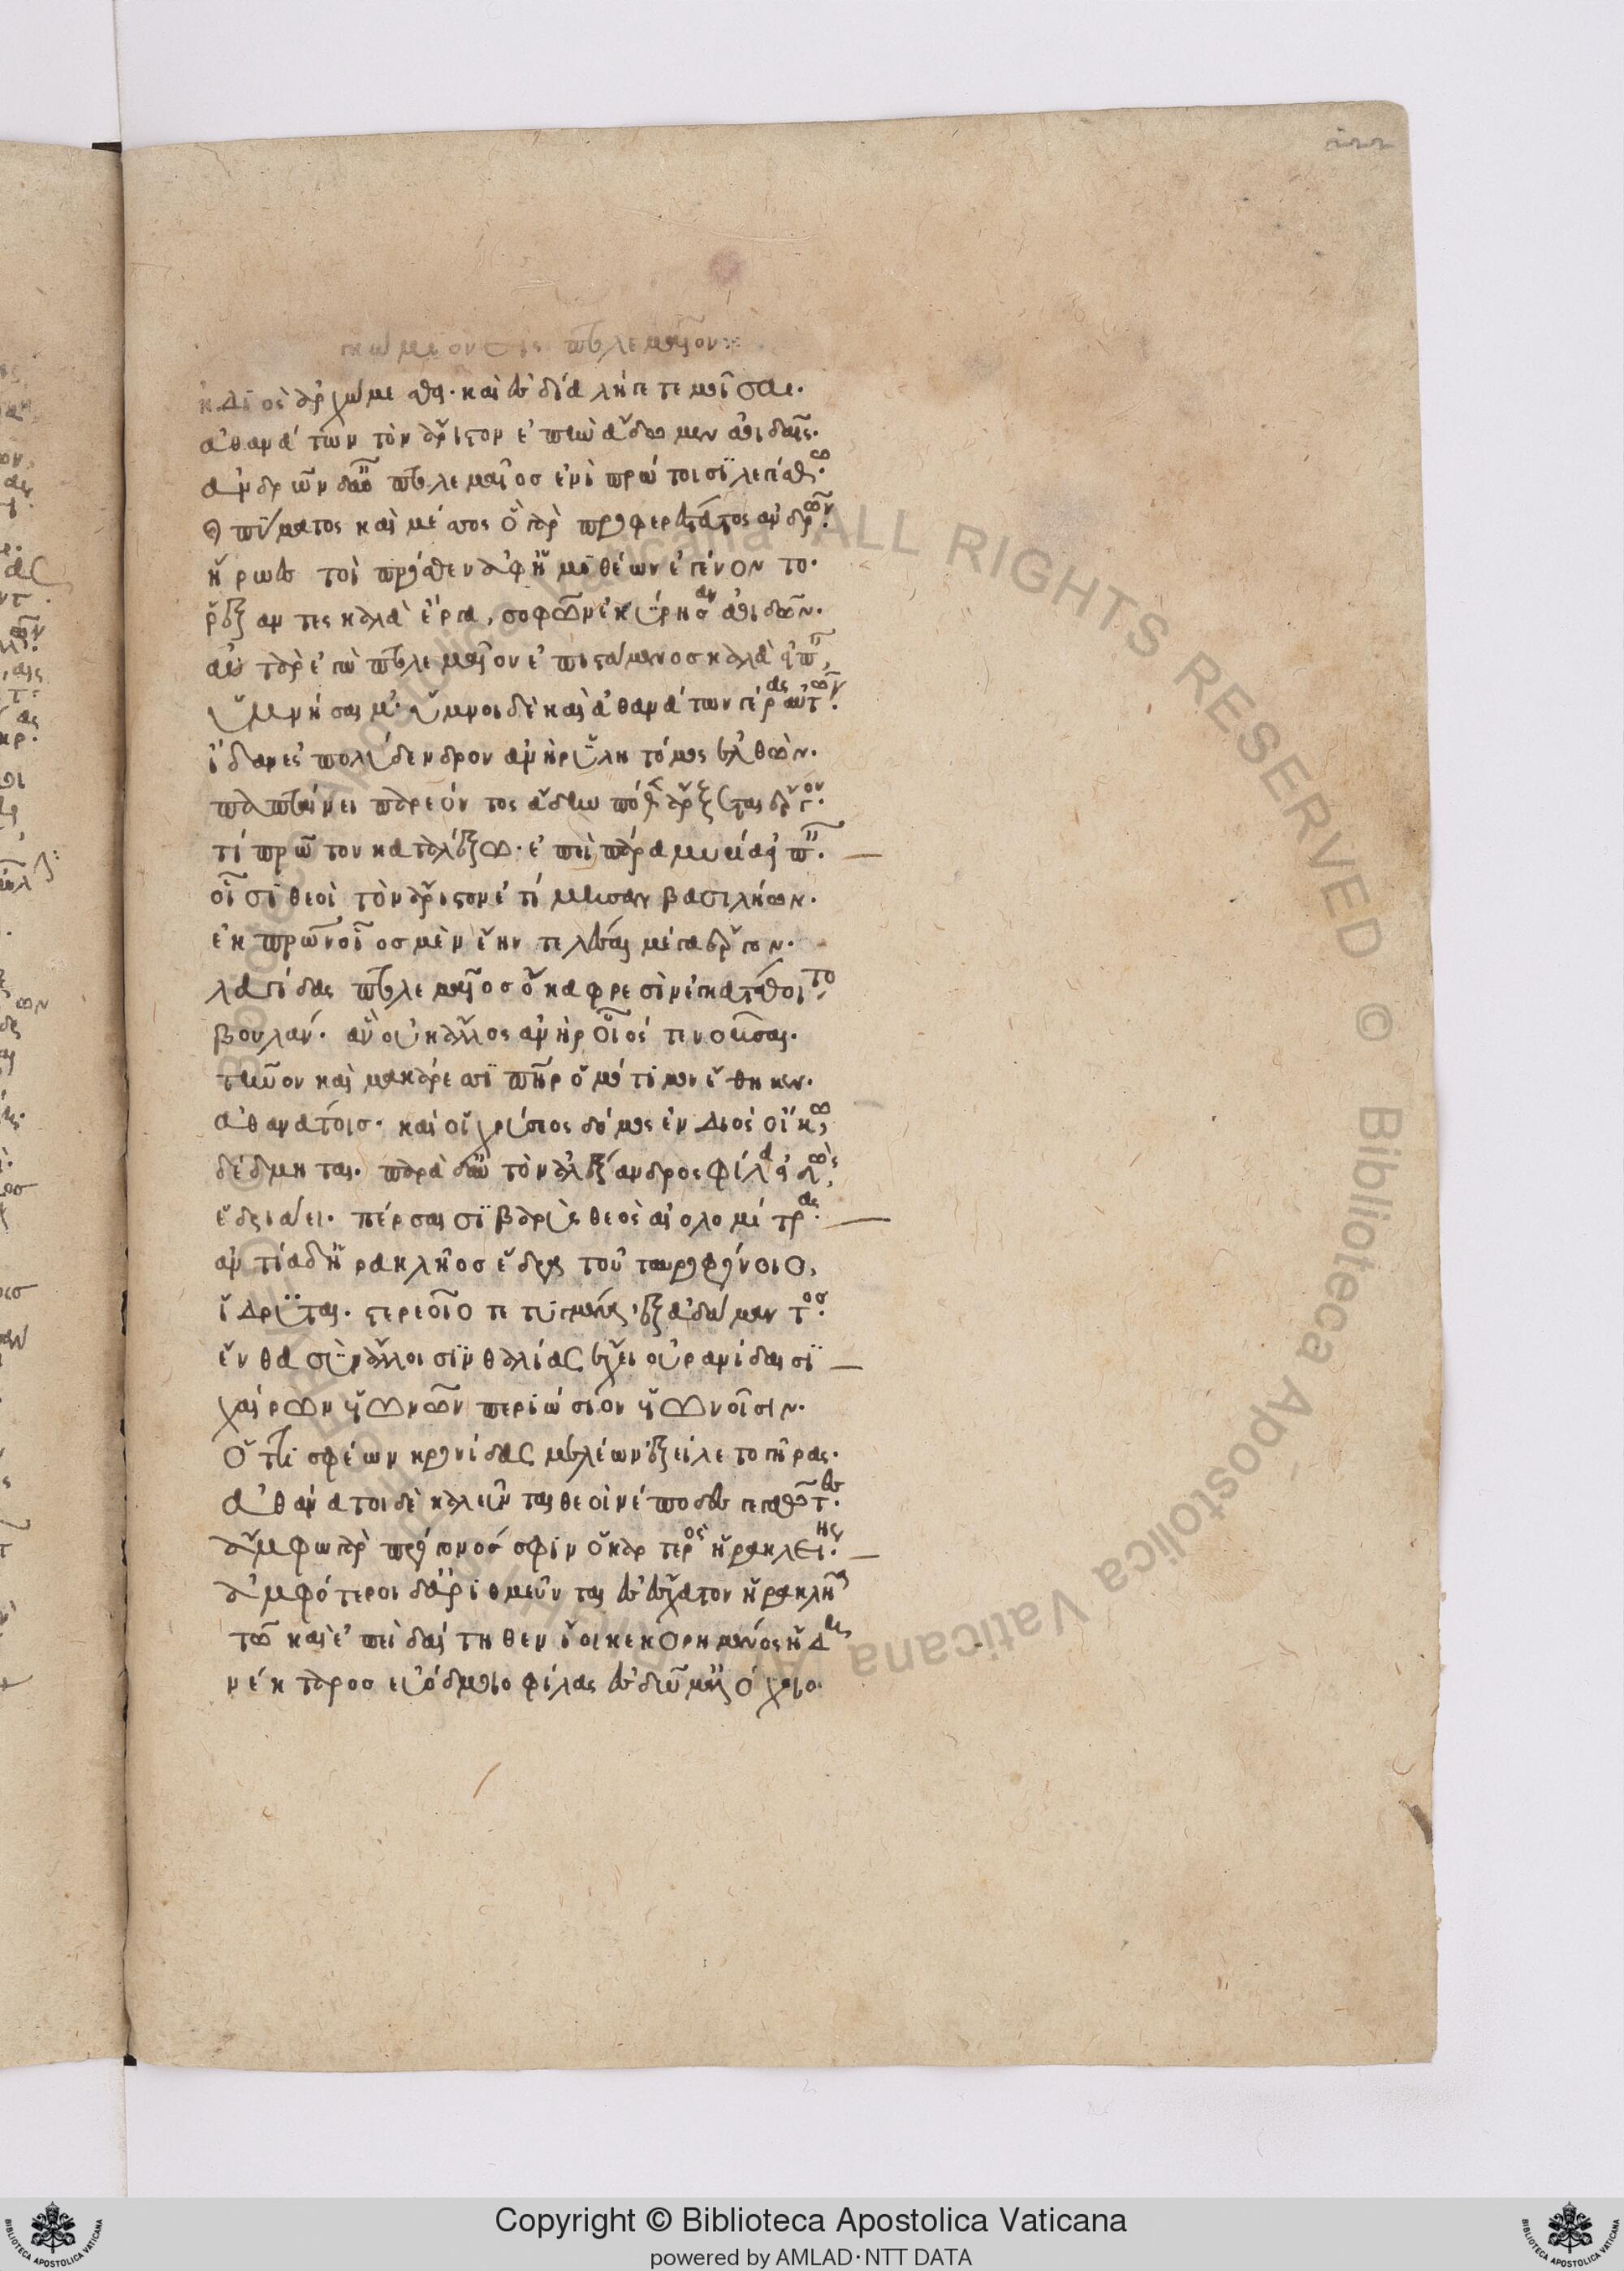 κώμιον εἰς πτολεμαῖον:
κ Διὸς ἀρχώμεσθα· καὶ ἐς δία λήγετε μοῖσαι·
ἀθανάτων τὸν ἄριστον ἐπὴν ἄδωμεν ἀοιδαῖς·
ἀνδρῶν δαὖ πτολεμαῖοσ ἐνὶ πρώτοισι λεγέσθω·
πύματος καὶ μέσσος ὃ γὰρ προφερέστατος ἀνδρῶν·
ἥρωες τοὶ πρόσθεν ἀφ' ἡμιθέων ἐγένοντο·
ῥέξαντες καλὰ ἔργα, σοφῶν ἐκύρησαν ἀοιδῶν·
αὐτὰρ ἐγὼ πτολεμαῖον ἐπιστάμενοσ καλὰ εἰπ,
ὑμνήσαιμ'· ὕμνοι δὲ καὶ ἀθανάτων γέρας αὐτῶν·
ἴδαν ἐς πολύδενδρον ἀνὴρ ὑλητόμος ἐλθὼν·
παπταίνει παρεόντος ἄδην πόθεν ἄρξεται ἔργον·
τί πρῶτον καταλέξω· ἐπεὶ πάρα μυρία εἰπ·
οἷσι θεοὶ τὸν ἄριστον ἐτίμησαν βασιλήων·
ἐκ πρῶν οἷοσ μὲν ἔην τελέσαι μέγα ἔργον·
λαγίδας πτολεμαῖοσ ὅκα φρεσὶν ἐγκατάθοιτο
βουλάν· ἃν οὐκ ἄλλος ἀνὴρ οἷός τε νοῆσαι·
τῆνον καὶ μακάρεσσι πῆρ ὁμότιμον ἔθηκεν·
ἀθανάτοισ· καί οἱ χρύσεος δόμος ἐν Διὸς οἴκω,
δέδμηται· παρὰ δαὐτὸν ἀλέξανδρος φίλα εἰδὼς,
ἑδριάει· πέρσαισι βαρὺς θεὸς αἰολομίτρας·
ἀντία δ' ἡρακλῆοσ ἕδρα ταυροφόνοιο,
ἵδρυται· στερεοῖο τετυγμένα ἐξ ἀδάμαντος·
ἔνθα σὺν ἄλλοισιν θαλίας ἔχει οὐρανίδαισι
χαίρων υἱωνῶν περιώσιον υἱωνοῖσιν·
ὅττι σφέων κρονίδας μελέων ἐξείλετο γῆρας·
ἀθάνατοι δὲ καλεῦνται θεοὶ νέποδες γεγαῶτες·
ἄμφω γὰρ πρόγονός σφιν ὁ καρτερὸς ἡρακλείδης·
ἀμφότεροι δ' ἀριθμεῦνται ἐς ἔσχατον ἡρακλῆα
τῶ καὶ ἐπεὶ δαίτηθεν ἴοι κεκορημένος ἤδη
νέκταροσ εὐόδμοιο φίλας ἐς δῶμ' ἀλόχοιο·
Copyright © Biblioteca Apostolica Vaticana
powered by AMLAD·NTT DATA